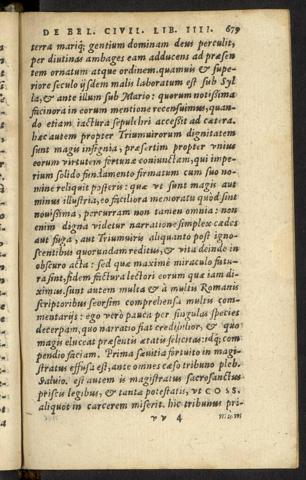 DE BEL. CIVII. LIB. IIII. 679
terra mariq́; gentium dominam deus perculit,
per diutinas ambages eam adducens ad præsen
tem ornatum atque ordinem. quamuis & supe-
riore seculo ijsdem malis laboratum est sub Syl
la, & ante illum sub Mario: quorum notißima
facinora in eorum mentione recensuimus, quan-
do etiam iactura sepulchri acceßit ad cætera.
hæc autem propter Triumuirorum dignitatem
sunt magis insignia, præsertim propter vnius
eorum virtutem fortunæ coniunctam, qui impe-
rium solido fundamento firmatum cum suo no-
mine reliquit posteris: quæ vt sunt magis aut
minus illustria, eo faciliora memoratu quòd sint
nouißima, percurram non tamen omnia: non
enim digna videtur narratione simplex cædes
aut fuga, aut Triumuiris aliquanto post igno-
scentibus quorundam reditus, & vita deinde in
obscuro acta: sed quæ maximè miraculo futu-
ra sint, fidem factura lectori eorum quæ iam di-
ximus. sunt autem multa & à multis Romanis
scriptoribus seorsim comprehensa multis com-
mentarijs: ego verò pauca per singulas species
decerpam, quo narratio fiat credibilior, & quo
magis eluceat præsentis ætatis felicitas: idq́; com
pendio faciam. Prima sæuitia fortuito in magi-
stratus effusa est, ante omnes cæso tribuno pleb.
Saluio. est autem is magistratus sacrosanctus
priscis legibus, & tanta potestatis, vt COSS.
aliquot in carcerem miserit. hic tribunus pri-
vv 4
mùm